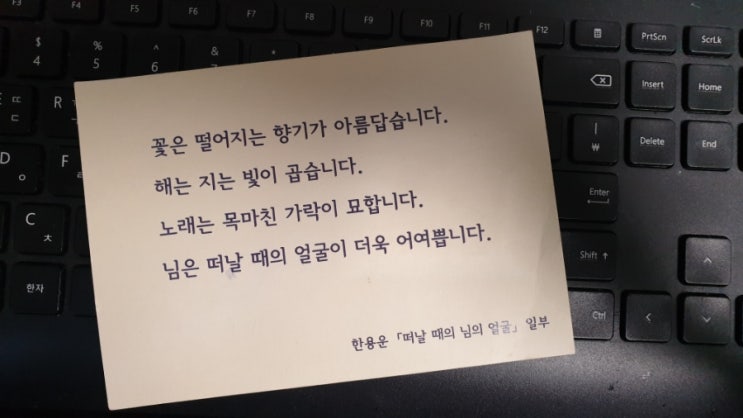 꽃은 떨어지는 향기가 아름답습니다.
해는 지는 빛이 곱습니다.
노래는 목마친 가락이 묘합니다.
님은 떠날 때의 얼굴이 더욱 어여쁩니다.
한용운 「떠날 때의 님의 얼굴」 일부
F3 F4 F5 F6 F7 F8 F9 F10 F11 F12 PrtScn ScrLk
$ % ^ & *
4 5 6
Insert Home
E ㄸ ㄷ R
| ₩ Delete End
D ㅇ F
Enter
C ㅊ
Shift ↑
한자
Ctrl